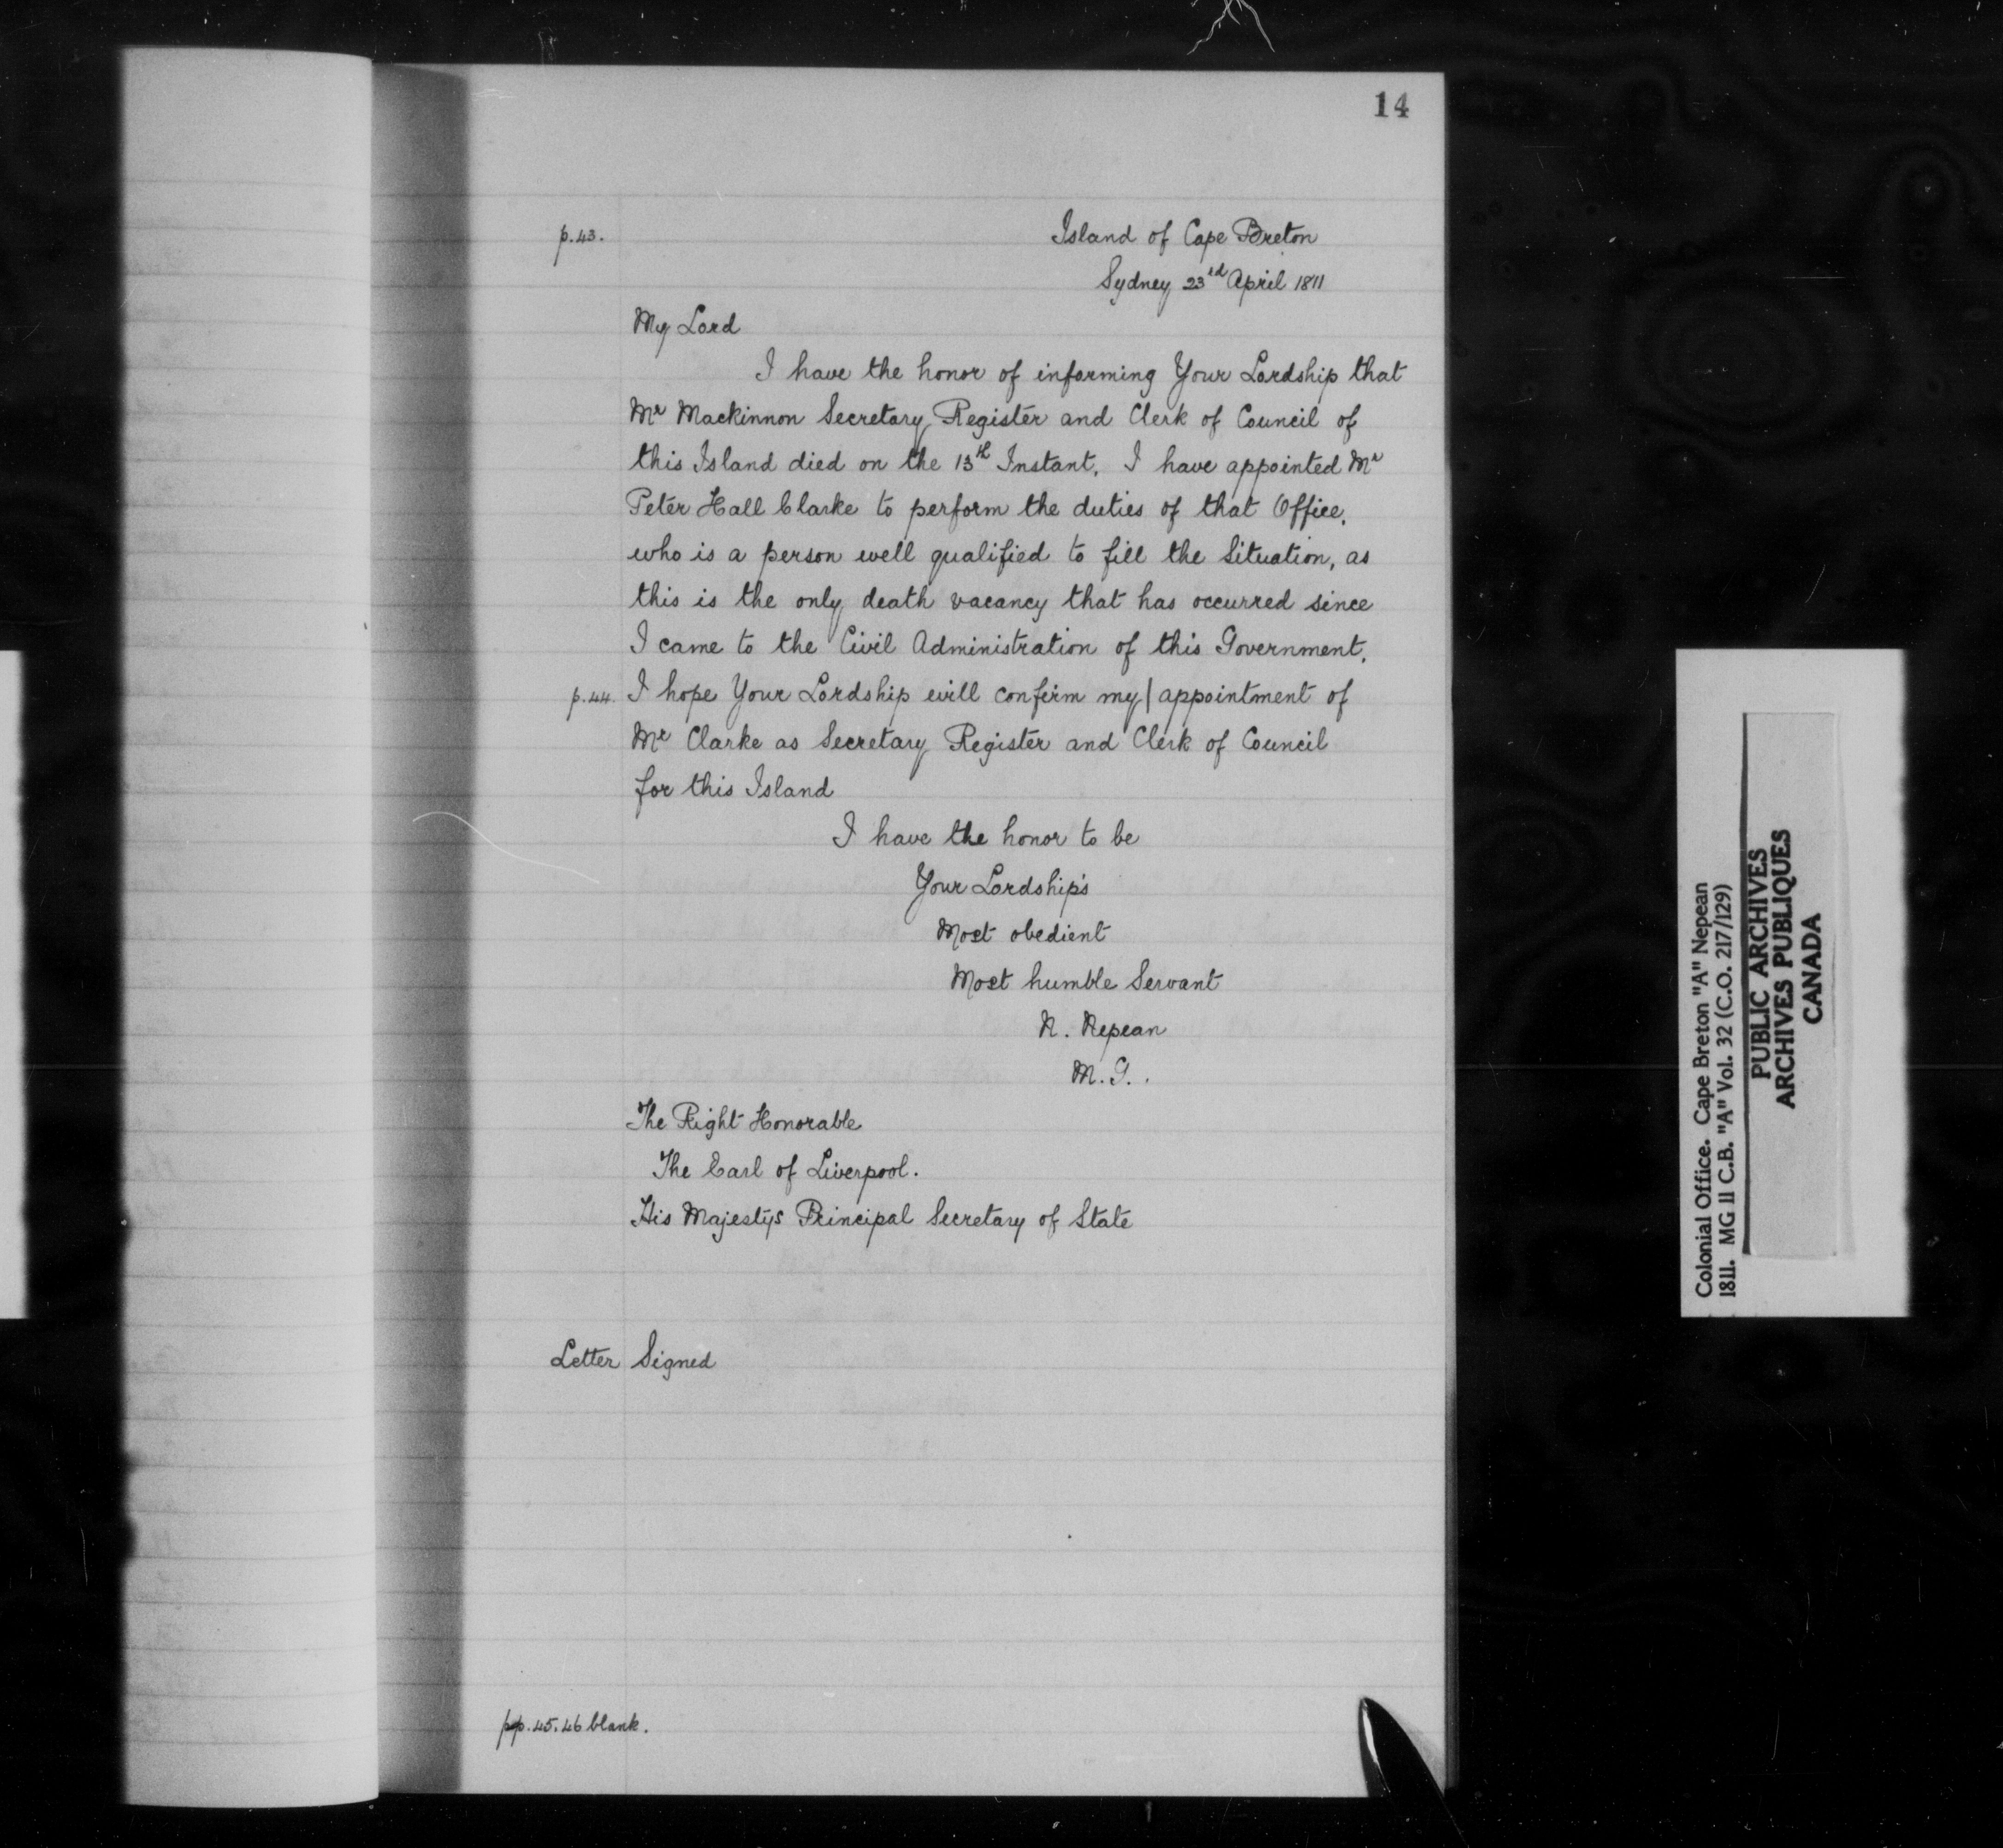 14
p.43.
Island of Cape Breton
Sydney 23rd April 1811
My Lord
I have the honor of informing Your Lordship that
Mr Mackinnon Secretary Register and Clerk of Council of
this Island died on the 13th Instant. I have appointed Mr
Peter Hall Clarke to perform the duties of that Office.
who is a person well qualified to fill the Situation, as
this is the only death vacancy that has occurred since
I came to the Civil Administration of this Government.
p.44. I hope Your Lordship will confirm my | appointment of
Mr Clarke as Secretary Register and Clerk of Council
for this Island
I have the honor to be
Your Lordship's
Most obedient
Most humble Servant
N. Nepean
M.G..
The Right Honorable
The Earl of Liverpool.
His Majestys Principal Secretary of State
Letter Signed
pp.45.46 blank.
Colonial Office. Cape Breton "A" Nepean
1811. MG 11 C.B. "A" Vol. 32 (C.O. 217/129)
PUBLIC ARCHIVES
ARCHIVES PUBLIQUES
CANADA